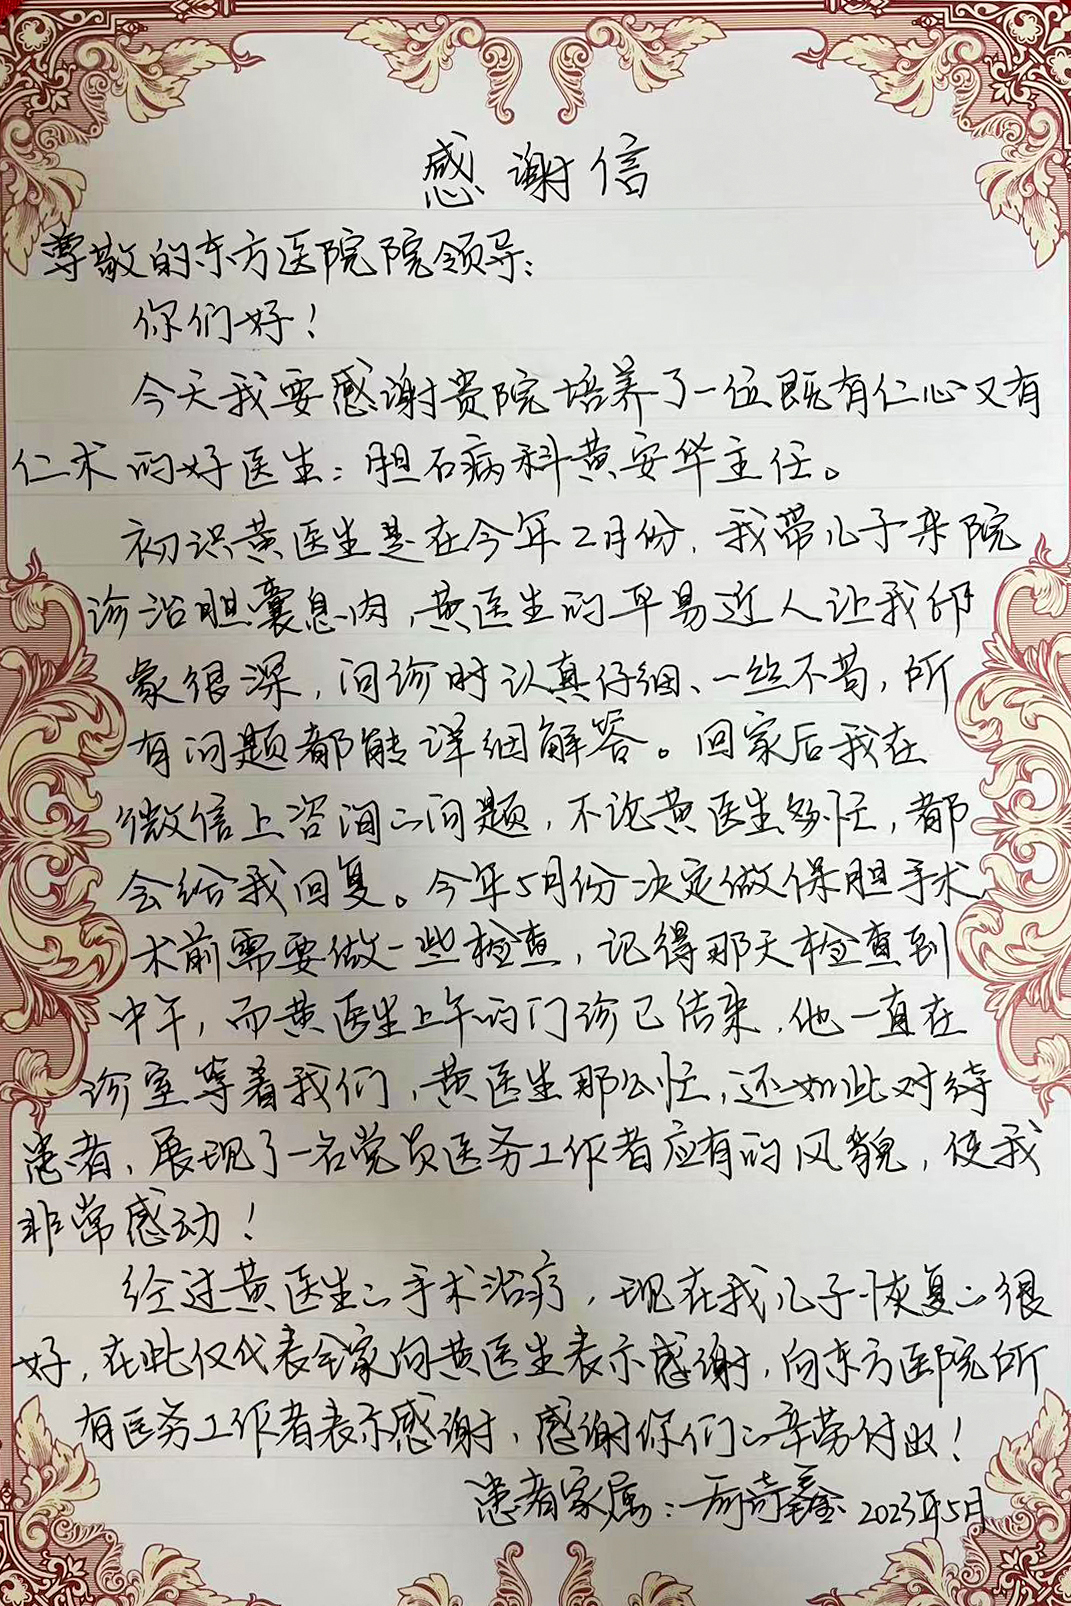 感谢信
尊敬的东方医院院领导：
你们好！
今天我要感谢贵院培养了一位既有仁心又有
仁术的好医生：胆石病科黄安华主任。
初识黄医生是在今年2月份，我带儿子来院
诊治胆囊息肉，黄医生的平易近人让我印
象很深，问诊时认真仔细、一丝不苟，所
有问题都能详细解答。回家后我在
微信上咨询の问题，不论黄医生多忙，都
会给我回复。今年5月份决定做保胆手术
术前需要做一些检查，记得那天检查到
中午，而黄医生上午的门诊已结束，他一直在
诊室等着我们，黄医生那么忙，还如此对待
患者，展现了一名党员医务工作者应有的风貌，使我
非常感动！
经过黄医生の手术治疗，现在我儿子恢复の很
好，在此仅代表全家向黄医生表示感谢，向东方医院所
有医务工作者表示感谢，感谢你们の辛劳付出！
患者家属： 2023年5月